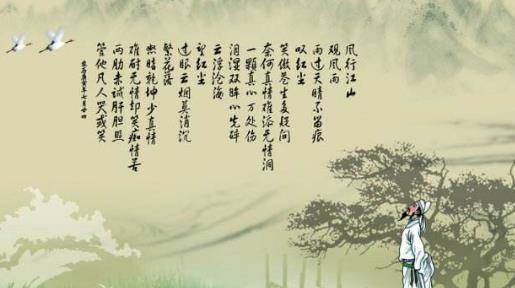 风行江山
观风雨
雨过天晴不留痕
叹红尘
笑傲苍生多疑问
奈何真情难派无情涧
一颗真心万处伤
泪湿双眸心先碎
云浮沧海
望红尘
过眼云烟莫消沉
繁花落
熙晴乾坤少真情
难耐无情却笑痴情苦
两肋赤诚肝胆照
管他凡人哭或笑